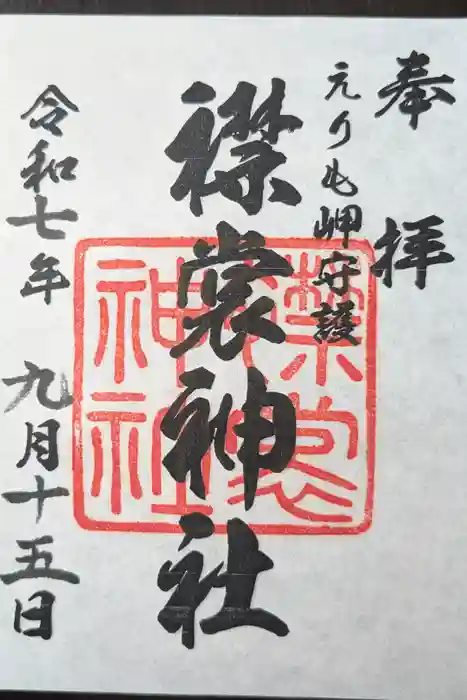 奉拝
えりも岬守護
襟裳神社
令和七年 九月十五日
襟裳
神社